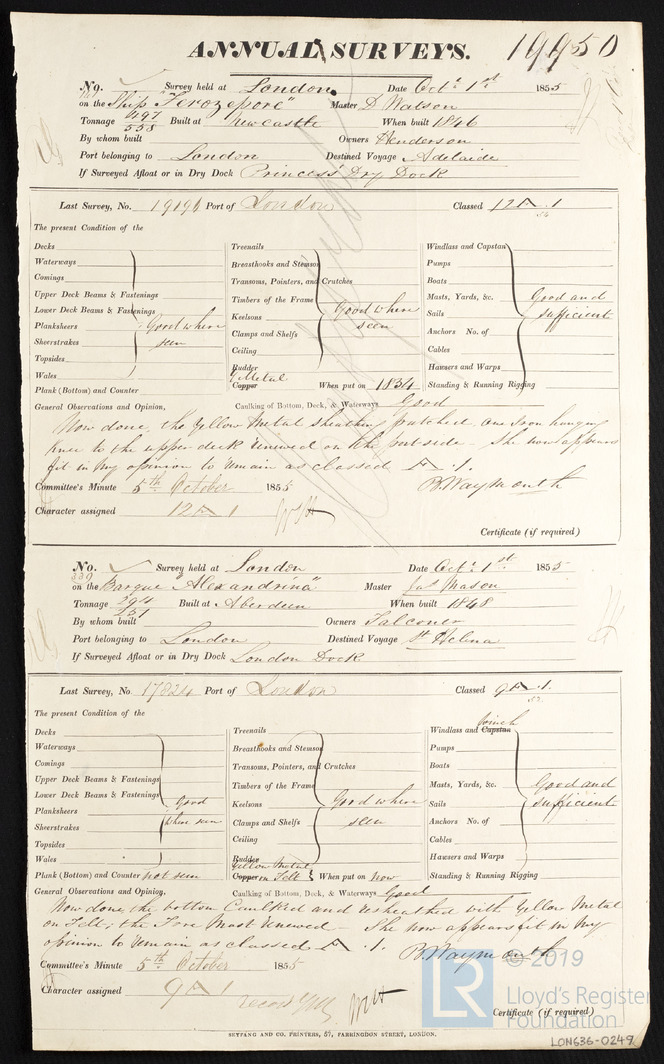 ANNUAL SURVEYS. 19950
No. Survey held at London. Date Oct. 1st 1855
on the Ship "Ferozepore" Master D Watson
Tonnage 497 558 Built at Newcastle When built 1846
By whom built Owners Henderson
Port belonging to London Destined Voyage Adelaide
If Surveyed Afloat or in Dry Dock Princess's Dry Dock
Last Survey, No. 19196 Port of London Classed 12 A . 1
54
The present Condition of the
Decks Treenails Windlass and Capstan
Waterways Breasthooks and Stemson Pumps
Comings Transoms, Pointers, and Crutches Boats
Upper Deck Beams & Fastenings Timbers of the Frame Masts, Yards, &c. Good and
Lower Deck Beams & Fastenings Keelsons Good where Sails sufficient
Planksheers Good where Clamps and Shelfs seen Anchors No. of
Sheerstrakes seen Ceiling Cables
Topsides Rudder Hawsers and Warps
Wales Y Metal Copper When put on 1854 Standing & Running Rigging
Plank (Bottom) and Counter
General Observations and Opinion, Caulking of Bottom, Deck, & Waterways Good
Now done, the Yellow Metal sheathing patched, one Iron hanging
knee to the upper deck renewed on the port side - She now appears
fit in my opinion to remain as classed A . 1.
Committee's Minute 5th October 1855 B. Waymouth
Character assigned 12 A 1
Certificate (if required)
No. 239 Survey held at London Date Oct. 1st 1855
on the Barque "Alexandrina" Master Jas Mason
Tonnage 294 251 Built at Aberdeen When built 1848
By whom built Owners Falconer
Port belonging to London Destined Voyage St Helena
If Surveyed Afloat or in Dry Dock London Dock
Last Survey, No. 17824 Port of London Classed 9 A . 1.
The present Condition of the
Decks Treenails Windlass and Capstan Winch
Waterways Breasthooks and Stemson Pumps
Comings Transoms, Pointers, and Crutches Boats
Upper Deck Beams & Fastenings Timbers of the Frame Masts, Yards, &c. Good and
Lower Deck Beams & Fastenings Good Keelsons Good where Sails sufficient
Planksheers where seen Clamps and Shelfs seen Anchors No. of
Sheerstrakes Ceiling Cables
Topsides Rudder Hawsers and Warps
Wales Yellow Metal
Plank (Bottom) and Counter not seen Copper on Felt When put on Now Standing & Running Rigging
General Observations and Opinion, Caulking of Bottom, Deck, & Waterways Good
Now done, the bottom Caulked and resheathed with Yellow Metal
on Felt; the Fore Mast renewed - She now appears fit in my
opinion to remain as classed A . 1.
B. Waymouth
Committee's Minute 5th October 1855
Character assigned 9 A 1
Certificate (if required)
SEYFANG AND CO. PRINTERS, 57, FARRINGDON STREET, LONDON.
LR © 2019
Lloyd's Register
Foundation
LON636-0249